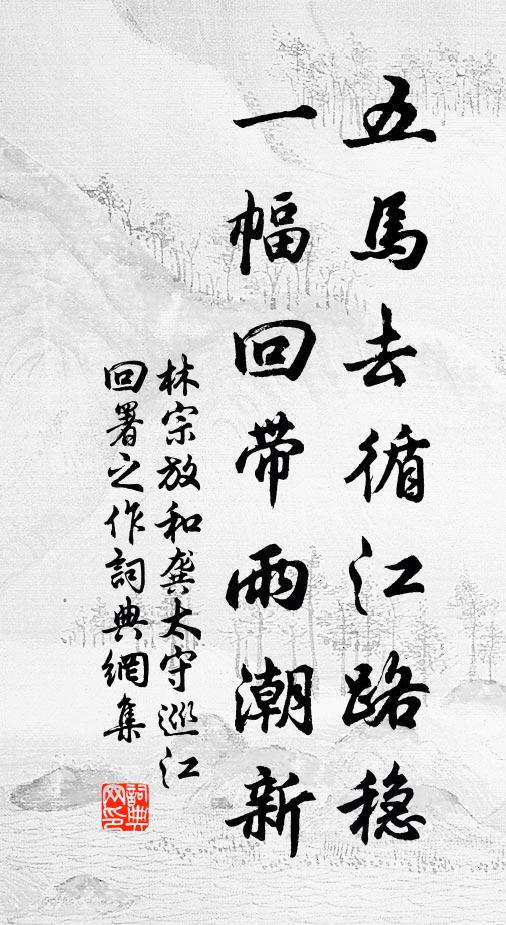 五馬去循江路穩
一幅回帶雨潮新
林宗放和龔太守巡江
回署之作詞典網集
詞典網印